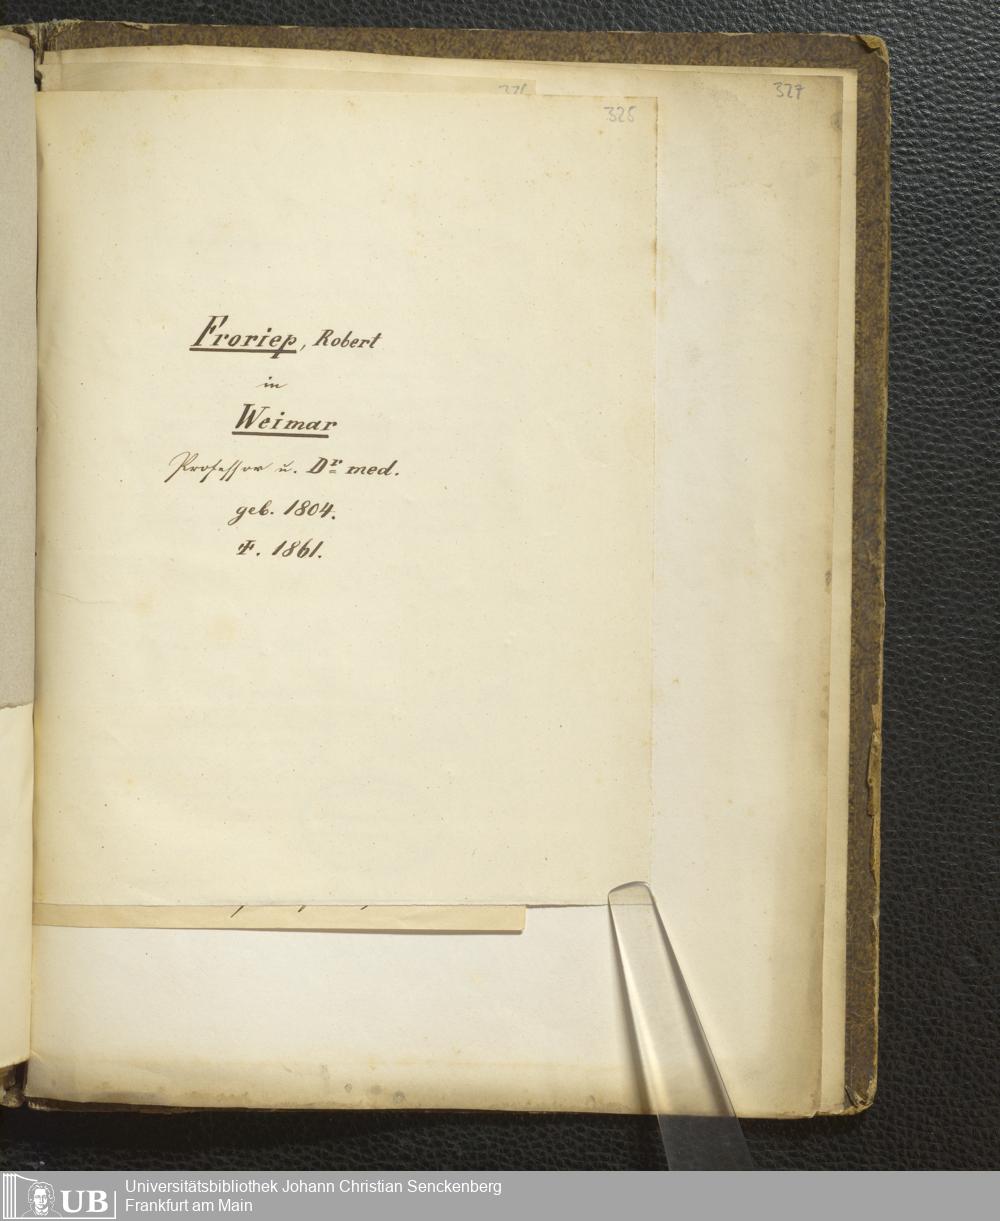 327
325
Froriep, Robert
in
Weimar
Professor u. Dr med.
geb. 1804.
†. 1861.
UB
Universitätsbibliothek Johann Christian Senckenberg
Frankfurt am Main